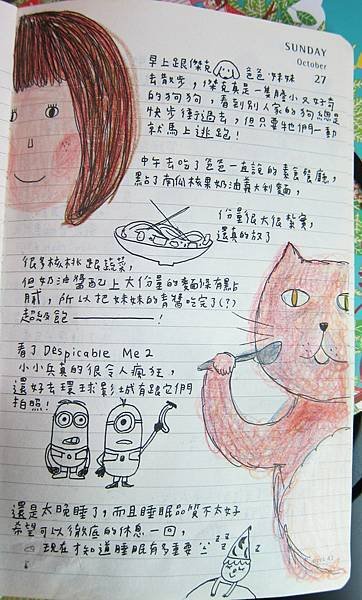 SUNDAY
October
27
早上跟傑克 爸爸妹妹
去散步，傑克真是一隻膽小又好奇
的狗狗，看到別人家的狗總是
快步衝過去，但只要牠們一動
就馬上逃跑！
中午去吃了爸爸一直說的素食餐廳，
點了南瓜核果奶油義大利麵，
份量很大很紮實，
還真的放了
很多核桃跟蔬菜，
但奶油醬配上大份量的麵條有點
膩，所以把妹妹的青醬吃完了(?)
超級飽————！
看了Despicable Me 2
小小兵真的很令人瘋狂，
還好去環球影城有跟它們
拍照！
還是太晚睡了，而且睡眠品質不太好
希望可以徹底的休息一回，
現在才知道睡眠有多重要
z z z